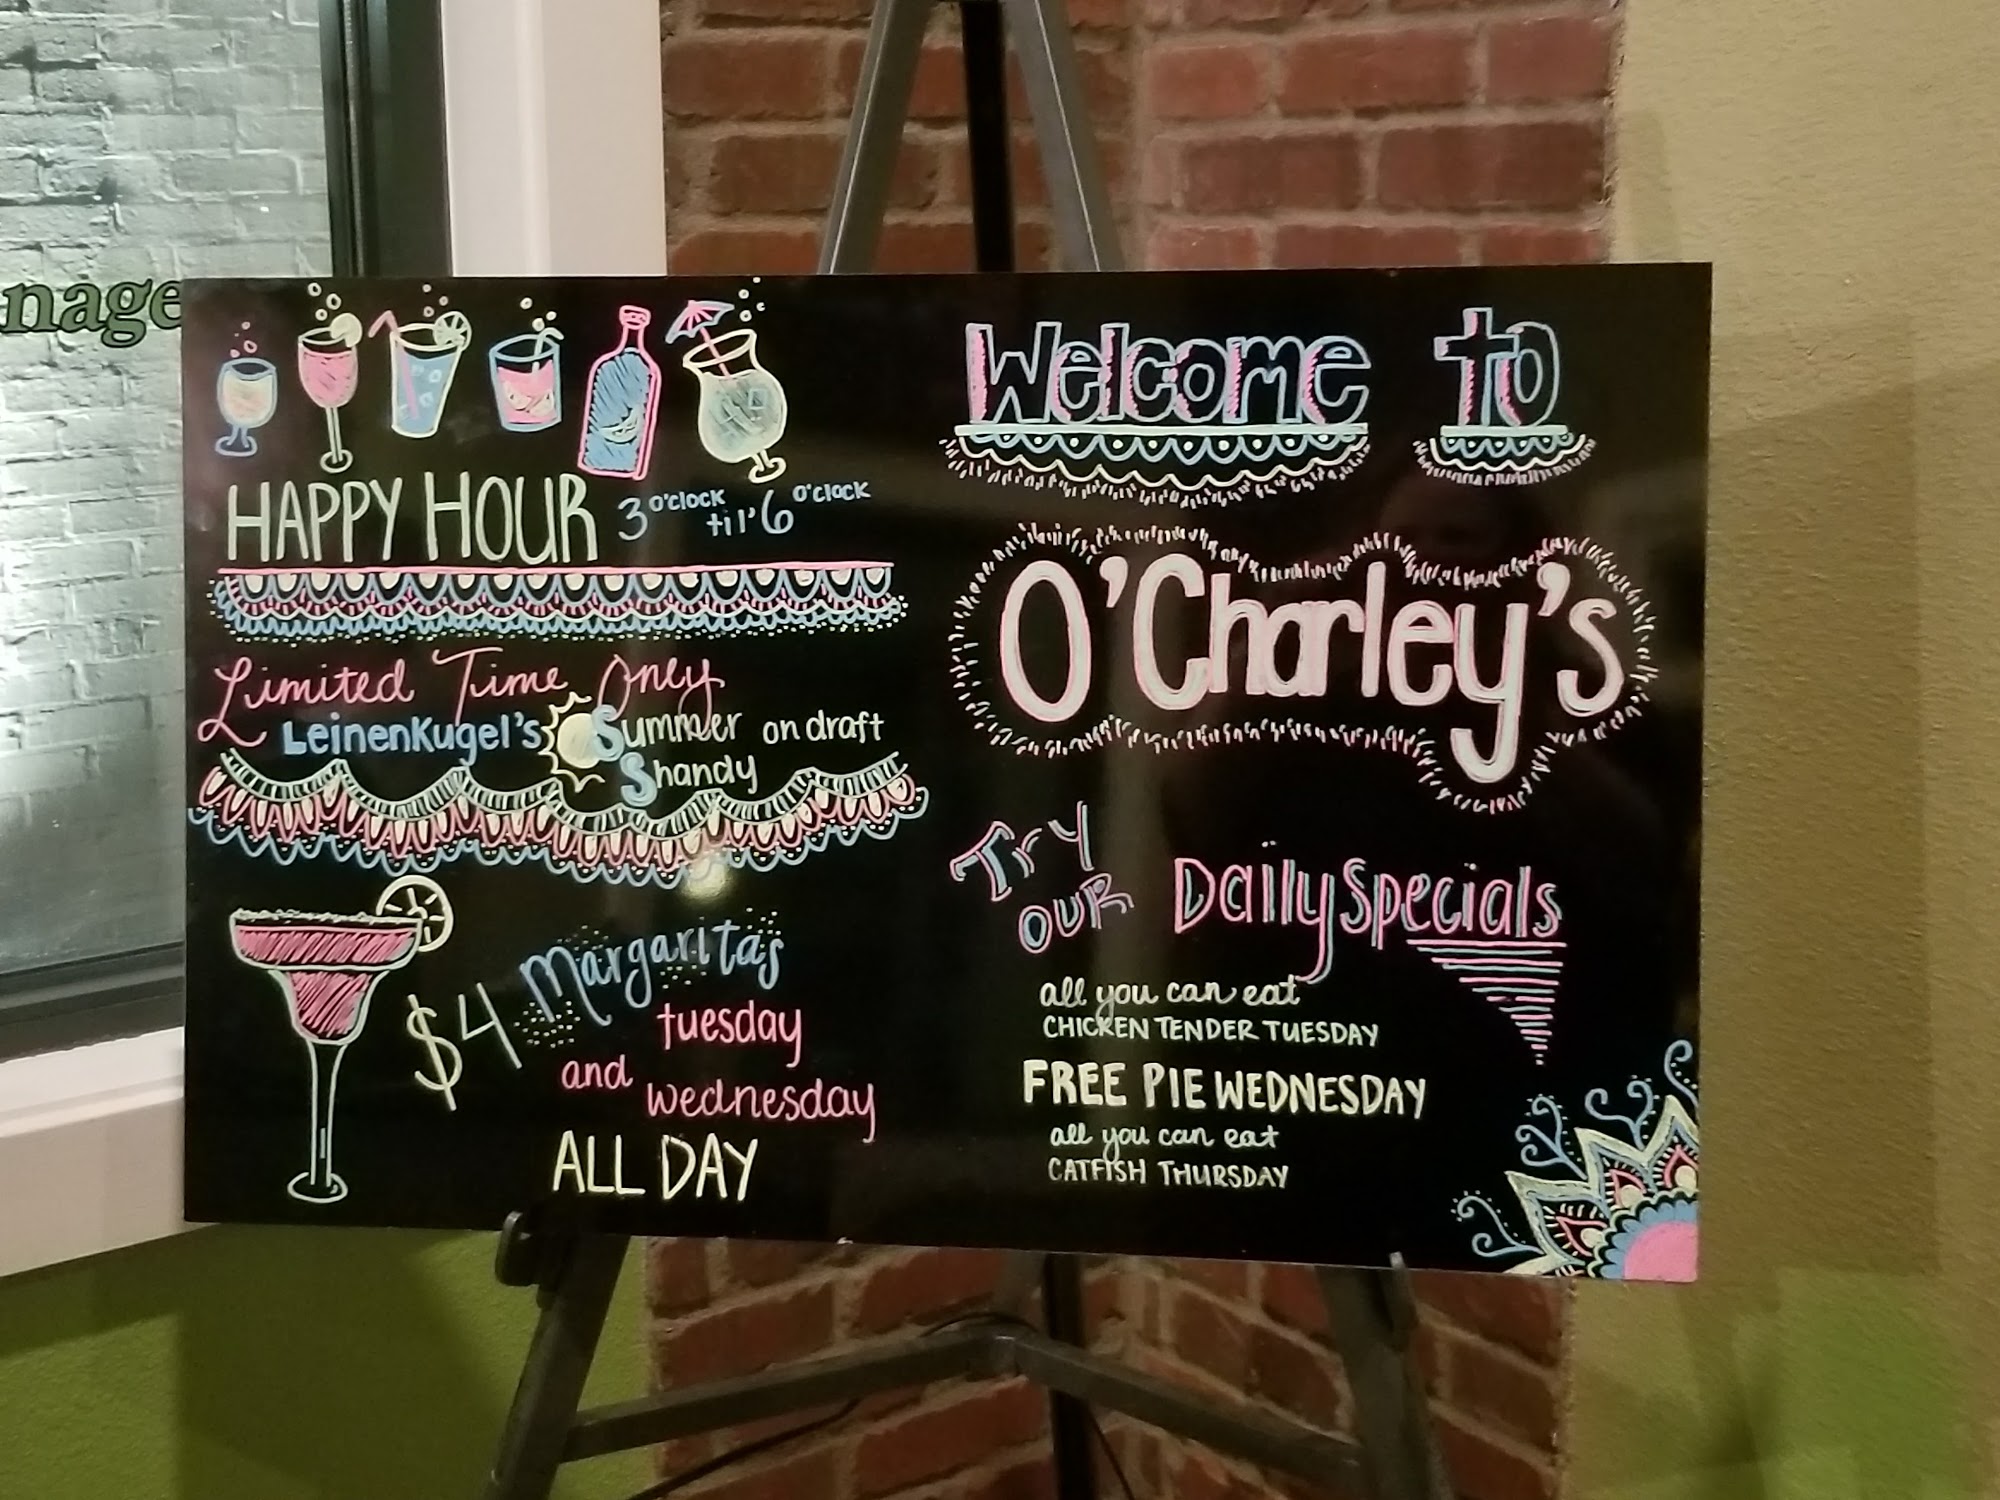 nage
HAPPY HOUR 3 O'CLOCK til' 6 O'CLOCK
Limited Time Only
LeinenKugel's Summer on draft
Shandy
$4 Margaritas
tuesday
and wednesday
ALL DAY
Welcome to
O'Charley's
Try
OUR
Daily Specials
all you can eat
CHICKEN TENDER TUESDAY
FREE PIE WEDNESDAY
all you can eat
CATFISH THURSDAY